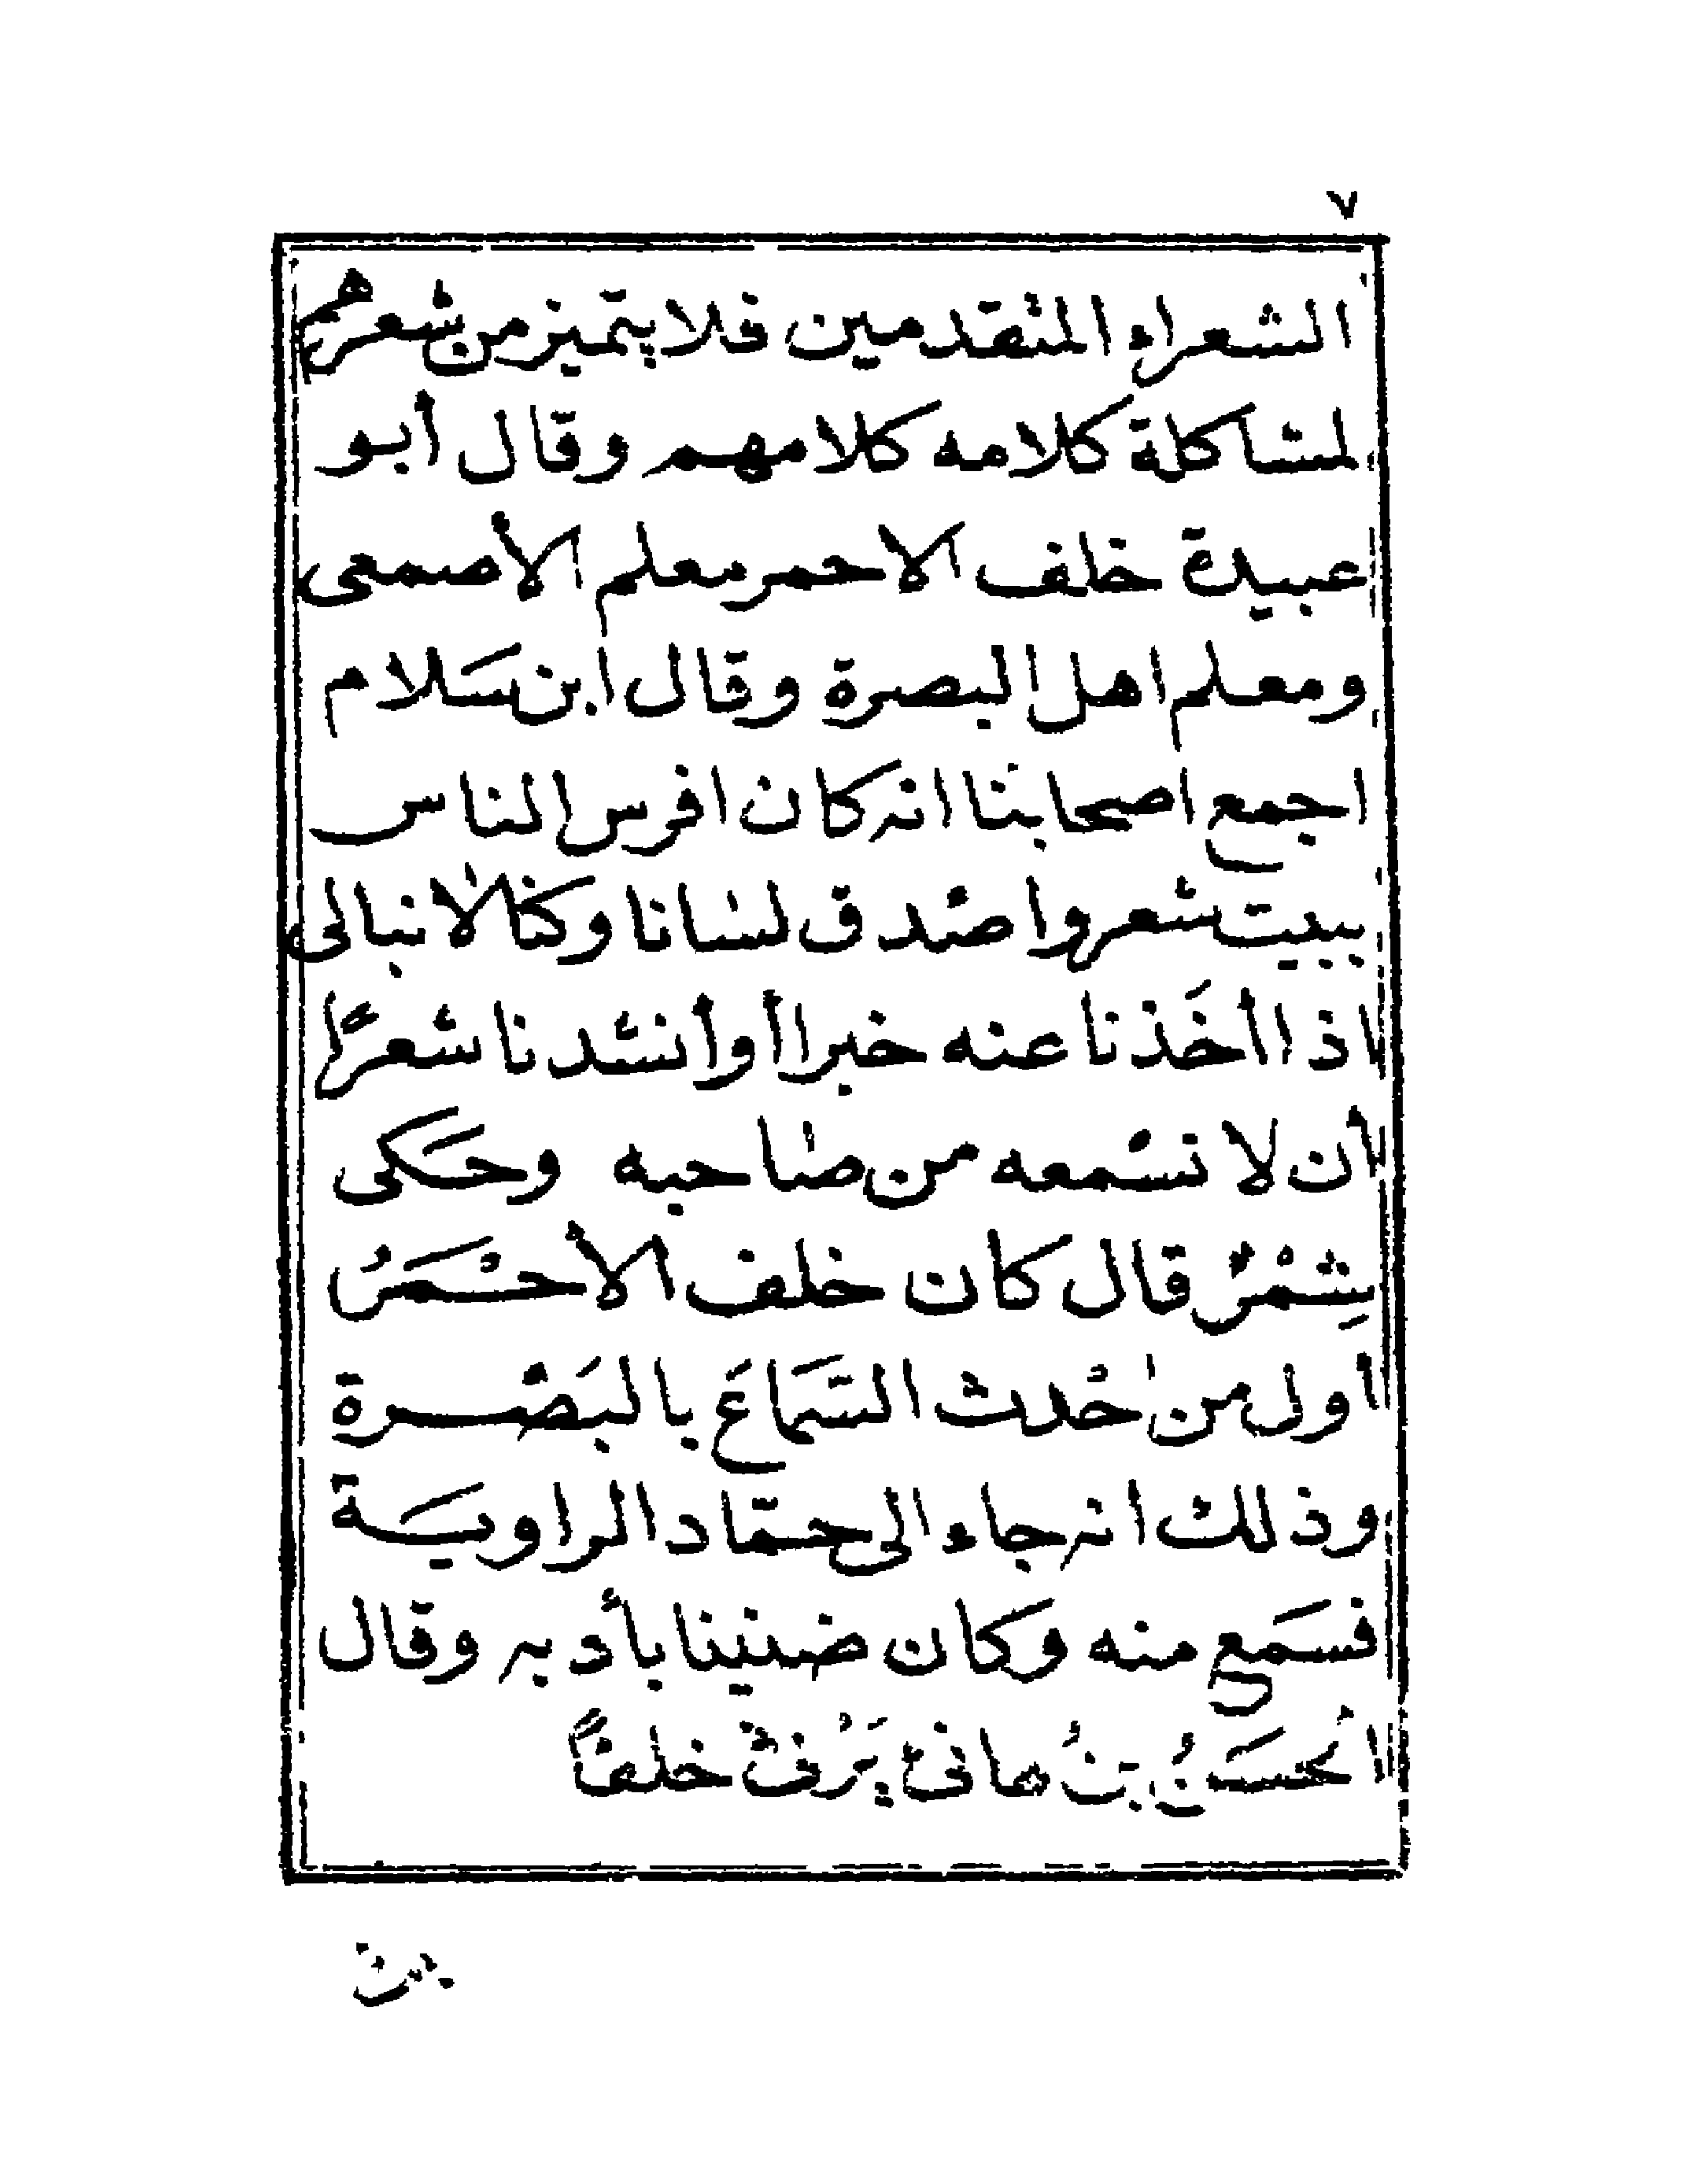 ٧
الشعراء المتقدمين فلا يتميز من شعرهم
لمشاكلة كلامه كلامهم وقال أبو
عبيدة خلف الاحمر معلم الأصمعى
ومعلم اهل البصرة وقال ابن سَلام
اجمع اصحابنا انه كان افرس الناس
ببيت شعر واصدق لسانا وكنا لا نبالى
اذا أخَذنا عنه خبرا أو أنشدنا شعرًا
أن لا نسمعه من صاحبه وحَكى
شِمْرٌ قال كان خلف الأحْمَرُ
أول من احْدث السَّمَاعَ بالبَصْرة
وذلك انه جاء الى حمّاد الراويَة
فسَمع منه وكان ضنينا بأدبه وقال
الحسَنُ بنُ هانئ يَرْثى خلفاً